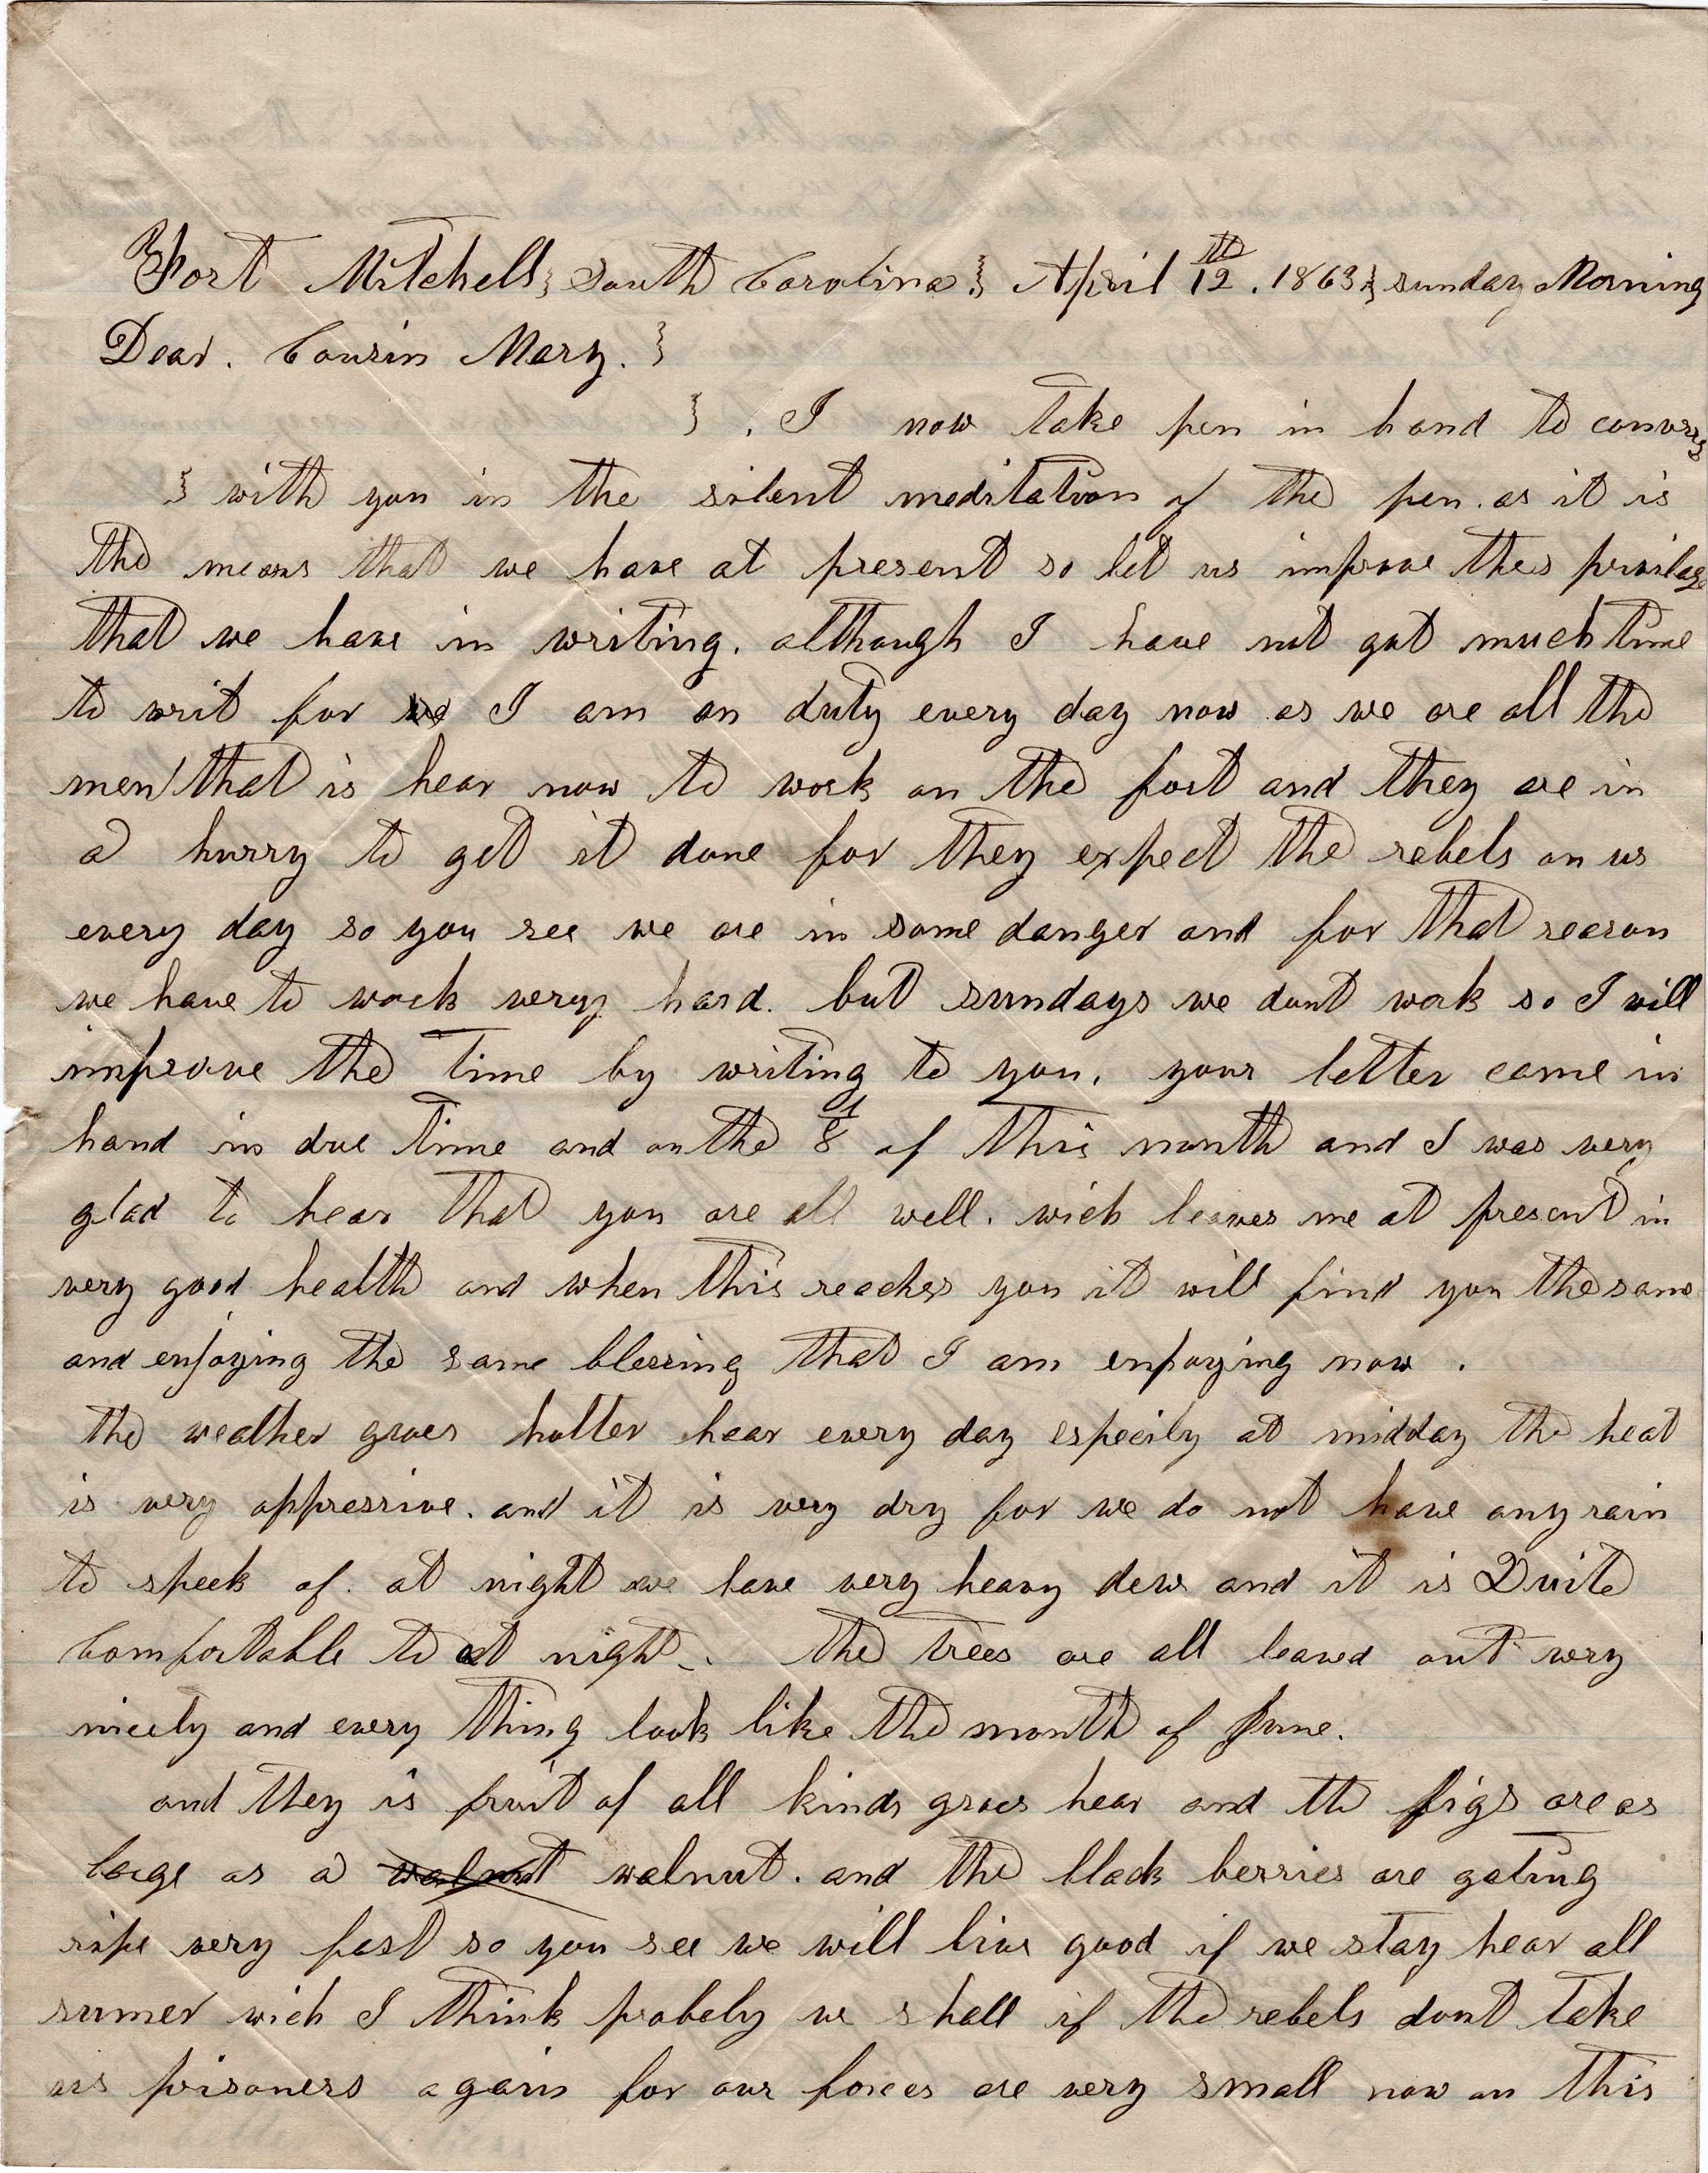 Fort Mitchell; South Carolina; April 12th. 1863; sunday Morning
Dear. Cousin Mary. }
} . I now take pen in hand to convers
} with you in the silent meditation of the pen. as it is
the means that we have at present so let us improve thes privilage
that we have in writing. although I have not got much time
to writ for we I am on duty every day now as we are all the
men that is hear now to work on the fort and they are in
a hurry to get it done for they expect the rebels on us
every day so you see we are in some danger and for that reason
we have to work very hard. but sundays we dont work so I will
improve the time by writing to you. your letter came in
hand in due time and on the 8 of this month and I was very
glad to hear that you are all well. wich leaves me at present in
very good health and when this reaches you it will find you the same
and enjoying the same blessing that I am enjoying now .
the weather grows hotter hear every day especily at midday the heat
is very oppressive. and it is very dry for we do not have any rain
to speek of. at night we have very heavy dew and it is Quite
Comfortable to at night. the trees are all leaved out very
nicely and every thing look like the month of June.
and they is fruit of all kinds grows hear and the figs are as
large as a walnut walnut. and the black berries are gating
ripe very fast so you see we will live good if we stay hear all
sumer wich I think probely we shall if the rebels dont take
us prisoners again for our forces are very small now on this